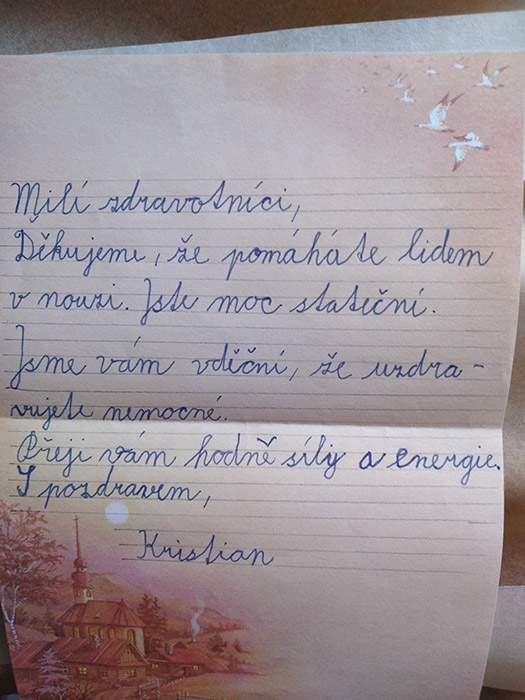 Milí zdravotníci,
Děkujeme, že pomáháte lidem
v nouzi. Jste moc stateční.
Jsme vám vděční, že uzdra-
vujete nemocné.
Přeji vám hodně síly a energie.
S pozdravem,
Kristian